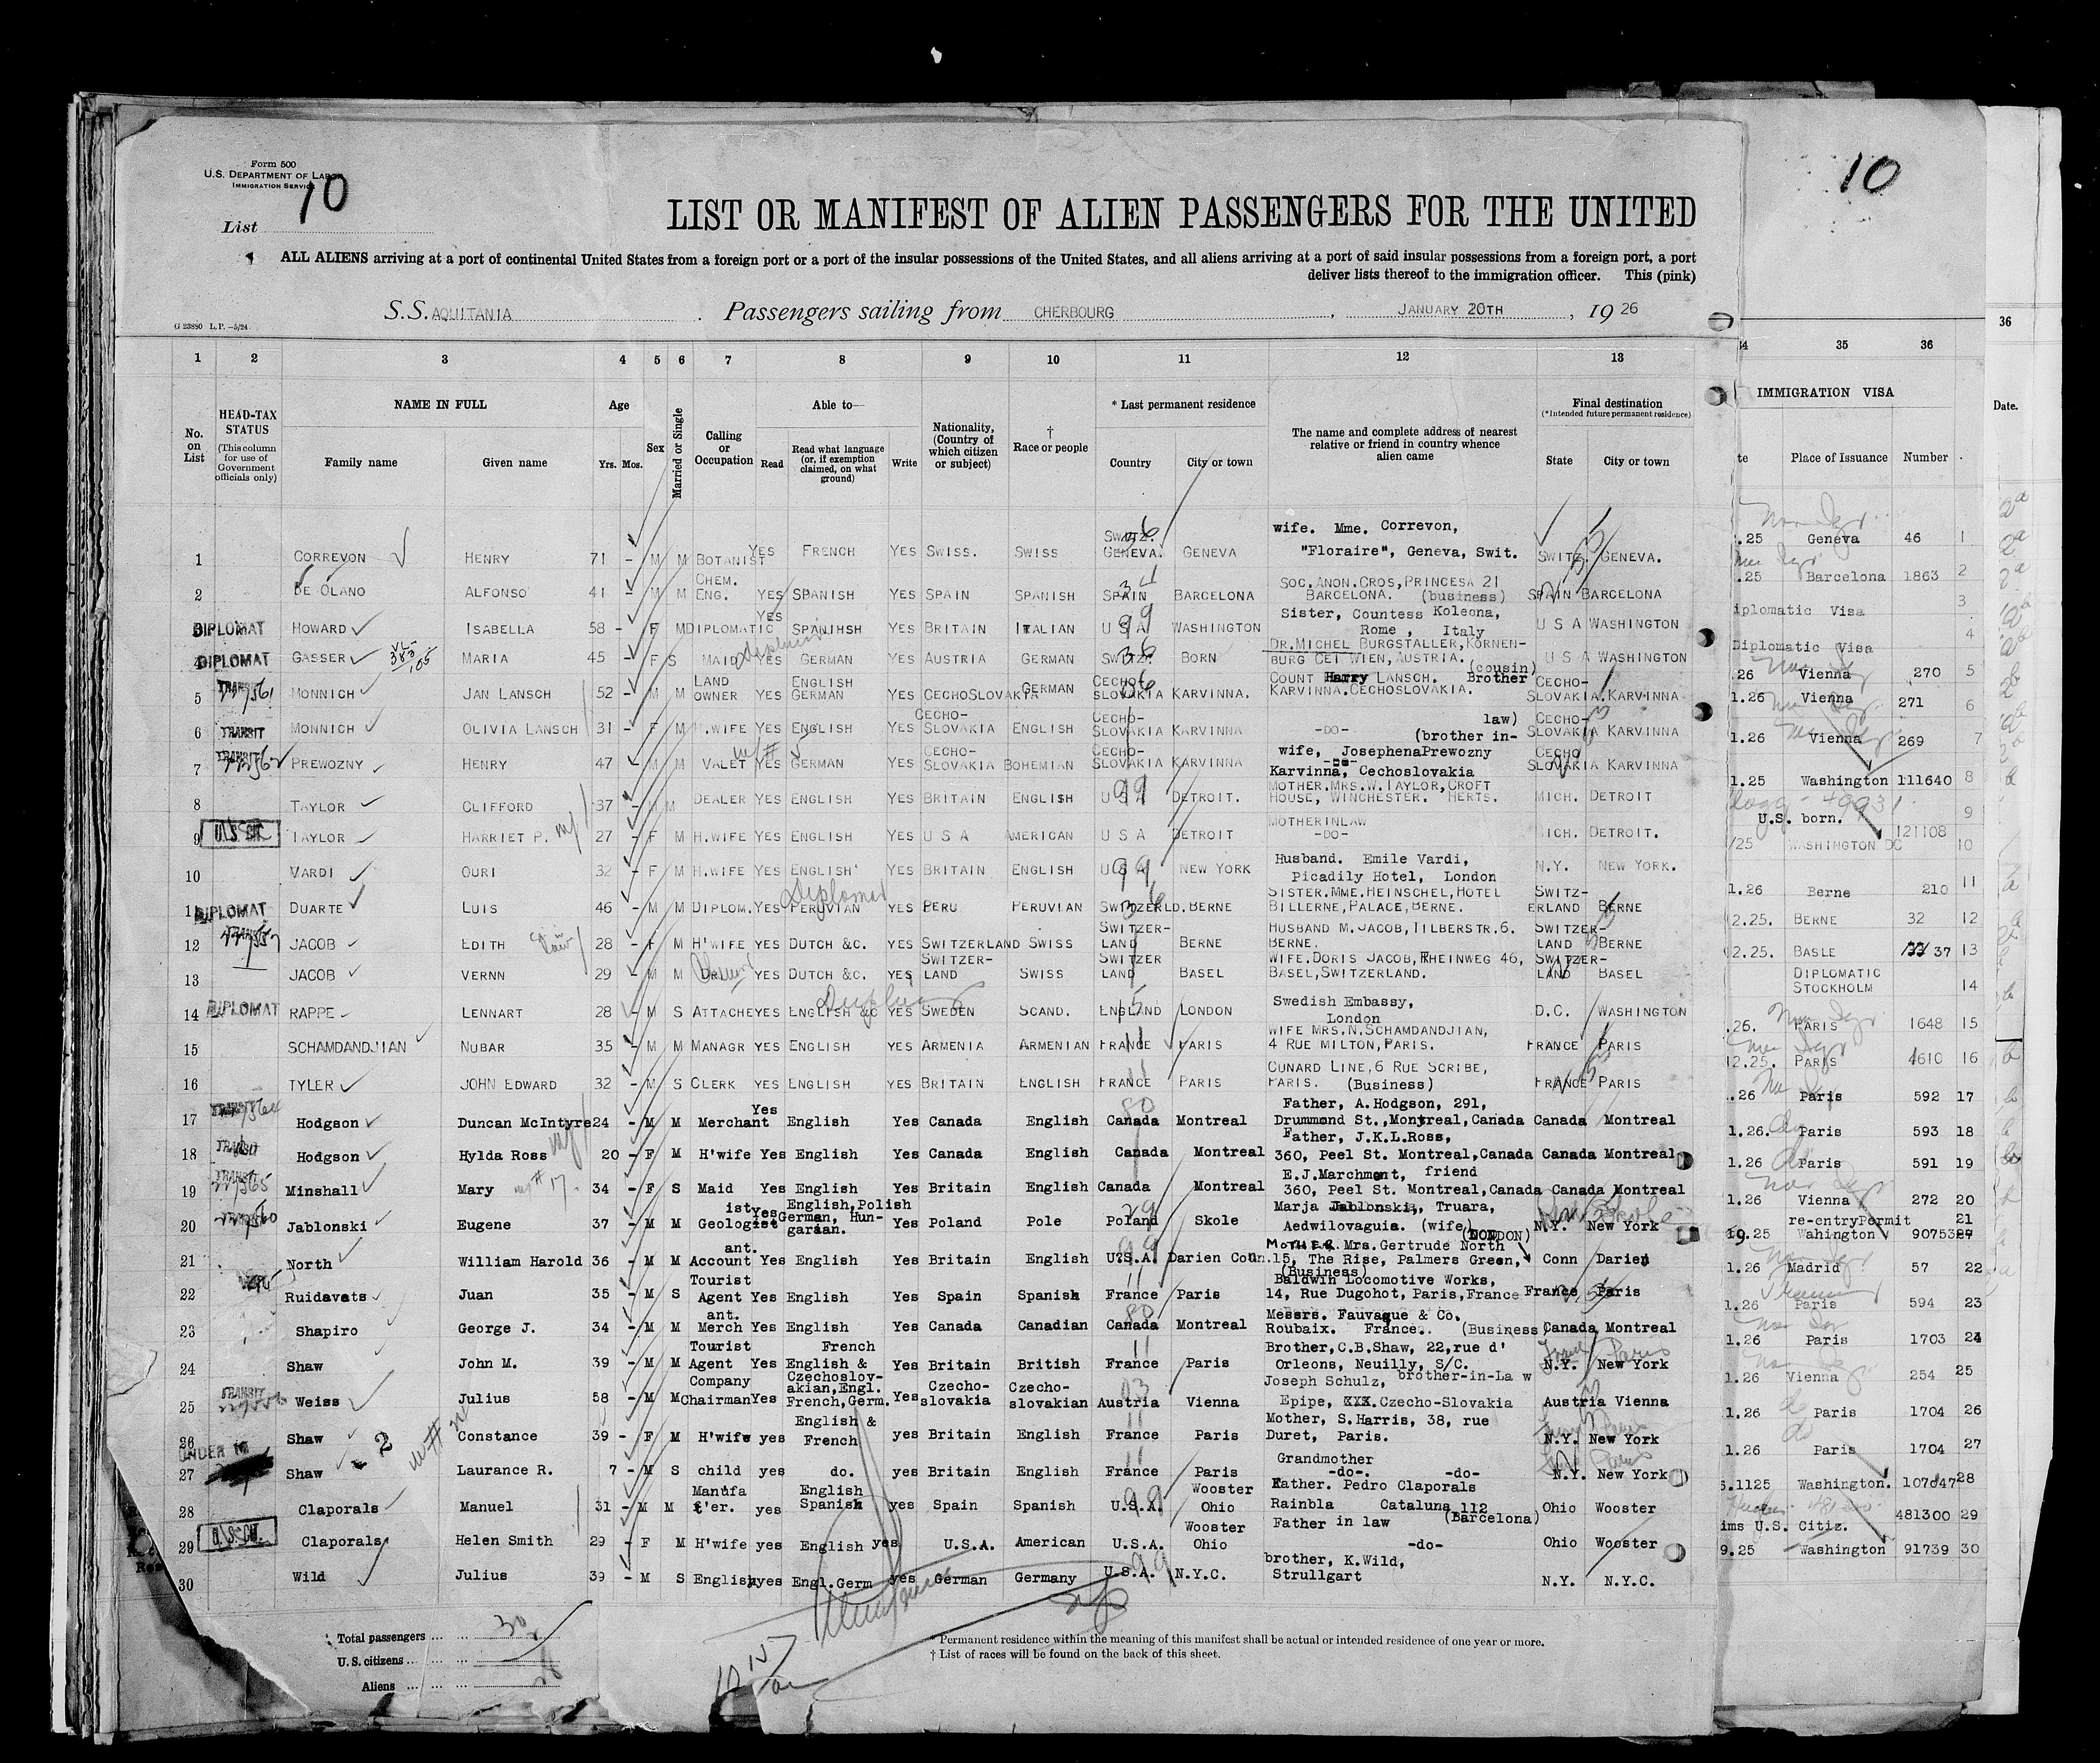 Form 500
U.S. DEPARTMENT OF LABOR
IMMIGRATION SERVICE
10
List
10
LIST OR MANIFEST OF ALIEN PASSENGERS FOR THE UNITED
ALL ALIENS arriving at a port of continental United States from a foreign port or a port of the insular possessions of the United States, and all aliens arriving at a port of said insular possessions from a foreign port, a port
deliver lists thereof to the immigration officer. This (pink)
S.S. AQUITANIA . Passengers sailing from CHERBOURG , JANUARY 20TH , 19 26
G 23880 L.P.—5/24
1 2 3 4 5 6 7 8 9 10 11 12 13 34 35 36 36
No. on List
HEAD-TAX STATUS
(This column for use of Government officials only)
NAME IN FULL
Family name Given name
Age
Yrs. Mos.
Sex
Married or Single
Calling or Occupation
Able to—
Read
Read what language (or, if exemption claimed, on what ground)
Write
Nationality, (Country of which citizen or subject)
† Race or people
* Last permanent residence
Country City or town
The name and complete address of nearest relative or friend in country whence alien came
Final destination
(*Intended future permanent residence)
State City or town
IMMIGRATION VISA
Place of Issuance Number
Date.
1 CORREVON HENRY 71 – M M BOTANIST YES FRENCH YES SWISS. SWISS SWITZ. GENEVA. GENEVA wife. Mme. Correvon, "Floraire", Geneva, Swit. SWITZ. GENEVA. .25 Geneva 46 1
2 DE OLANO ALFONSO 41 – M M CHEM. ENG. YES SPANISH YES SPAIN SPANISH SPAIN BARCELONA SOC.ANON.CROS,PRINCESA 21 BARCELONA. (business) SPAIN BARCELONA .25 Barcelona 1863 2
DIPLOMAT HOWARD ISABELLA 58 – F M DIPLOMATIC YES SPANIHSH YES BRITAIN ITALIAN U S A WASHINGTON Sister, Countess Koleona, Rome , Italy U S A WASHINGTON iplomatic Visa 3
4 DIPLOMAT GASSER MARIA 45 – F S MAID YES GERMAN YES AUSTRIA GERMAN SWITZ. BORN DR.MICHEL BURGSTALLER,KORNEN- BURG CEI WIEN,AUSTRIA. U S A WASHINGTON Diplomatic Visa 4
5 TRANSIT MONNICH JAN LANSCH 52 – M M LAND OWNER YES ENGLISH GERMAN YES CECHOSLOVAKIA GERMAN CECHO- SLOVAKIA KARVINNA. COUNT Harry LANSCH. (cousin) Brother KARVINNA.CECHOSLOVAKIA. CECHO- SLOVAKIA.KARVINNA .26 Vienna 270 5
6 TRANSIT MONNICH OLIVIA LANSCH 31 – F M H.WIFE YES ENGLISH YES CECHO- SLOVAKIA ENGLISH CECHO- SLOVAKIA KARVINNA -DO- (brother in- law) CECHO- SLOVAKIA KARVINNA 1.26 Vienna 271 6
7 TRANSIT PREWOZNY HENRY 47 – M M VALET YES GERMAN YES CECHO- SLOVAKIA BOHEMIAN CECHO- SLOVAKIA KARVINNA wife, JosephenaPrewozny Karvinna, Cechoslovakia CECHO SLOVAKIA KARVINNA 1.26 Vienna 269 7
8 TAYLOR CLIFFORD 37 – M M DEALER YES ENGLISH YES BRITAIN ENGLISH U S A DETROIT. MOTHER.MRS.W.TAYLOR,CROFT HOUSE, WINCHESTER. HERTS. MICH. DETROIT 1.25 Washington 111640 8
9 U.S. CIT. TAYLOR HARRIET P. 27 – F M H.WIFE YES ENGLISH YES U S A AMERICAN U S A DETROIT MOTHERINLAW -DO- MICH. DETROIT. U.S. born. 9
10 VARDI OURI 32 – F M H.WIFE YES ENGLISH YES BRITAIN ENGLISH U S A NEW YORK Husband. Emile Vardi, Picadily Hotel, London N.Y. NEW YORK. /25 WASHINGTON DC 121108 10
11 DIPLOMAT DUARTE LUIS 46 – M M DIPLOM. YES PERUVIAN YES PERU PERUVIAN SWITZERLD. BERNE SISTER.MME.HEINSCHEL,HOTEL BILLERNE,PALACE,BERNE. SWITZ- ERLAND BERNE 1.26 Berne 210 11
12 TRANSIT JACOB EDITH 28 – F M H'WIFE YES DUTCH &C. YES SWITZERLAND SWISS SWITZER- LAND BERNE HUSBAND M.JACOB,TILBERSTR.6. BERNE. SWITZER- LAND BERNE 2.25. BERNE 32 12
13 JACOB VERNN 29 – M M DR. YES DUTCH &C. YES SWITZER- LAND SWISS SWITZER LAND BASEL WIFE.DORIS JACOB,RHEINWEG 46, BASEL,SWITZERLAND. SWITZER- LAND BASEL 2.25. BASLE 37 13
14 DIPLOMAT RAPPE LENNART 28 – M S ATTACHE YES ENGLISH &C YES SWEDEN SCAND. ENGLAND LONDON Swedish Embassy, London D.C. WASHINGTON DIPLOMATIC STOCKHOLM 14
15 SCHAMDANDJIAN NUBAR 35 – M M MANAGR YES ENGLISH YES ARMENIA ARMENIAN FRANCE PARIS WIFE MRS.N.SCHAMDANDJIAN, 4 RUE MILTON,PARIS. FRANCE PARIS .26. PARIS 1648 15
16 TYLER JOHN EDWARD 32 – M S CLERK YES ENGLISH YES BRITAIN ENGLISH FRANCE PARIS CUNARD LINE,6 RUE SCRIBE, PARIS. (Business) FRANCE PARIS 2.25. PARIS 1610 16
17 TRANSIT Hodgson Duncan McIntyre 24 – M M Merchant Yes English Yes Canada English Canada Montreal Father, A.Hodgson, 291, Drummond St.,Montreal,Canada Canada Montreal .26 Paris 592 17
18 TRANSIT Hodgson Hylda Ross 20 – F M H'wife Yes English Yes Canada English Canada Montreal Father, J.K.L.Ross, 360, Peel St. Montreal,Canada Canada Montreal 1.26. Paris 593 18
19 TRANSIT Minshall Mary 34 – F S Maid Yes English Yes Britain English Canada Montreal E.J.Marchment, friend 360, Peel St. Montreal,Canada Canada Montreal 1.26 Paris 591 19
20 Jablonski Eugene 37 – M M Geologist Yes English,Polish German, Hun- garian. Yes Poland Pole Poland Skole Marja Jablonski, Truara, Aedwilovaguia. (wife) N.Y. New York 1.26 Vienna 272 20
21 North William Harold 36 – M M Account ant. Yes English Yes Britain English U.S.A. Darien Conn. MOTHER. Mrs.Gertrude North (LONDON) 15, The Rise, Palmers Green, Conn Darien 19.25 re-entryPermit Wahington 21
22 Ruidavets Juan 35 – M S Tourist Agent Yes English Yes Spain Spanish France Paris (Business) Baldwin Locomotive Works, 14, Rue Dugohot, Paris,France France Paris 1.26 Madrid 57 22
23 Shapiro George J. 34 – M M Merch ant. Yes English Yes Canada Canadian Canada Montreal Messrs. Fauvague & Co. Roubaix. France.. (Business) Canada Montreal 1.26 Paris 594 23
24 Shaw John M. 39 – M M Tourist Agent Yes French English & Yes Britain British France Paris Brother,C.B.Shaw, 22,rue d' Orleons, Neuilly, S/C. N.Y. New York 1.26 Paris 1703 24
25 TRANSIT Weiss Julius 58 – M M Company Chairman Yes Czechoslov- akian,Engl. French,Germ. Yes Czecho- slovakia Czecho- slovakian Austria Vienna Joseph Schulz, brother-in-La w Epipe, XXX.Czecho-Slovakia Austria Vienna 1.26 Vienna 254 25
26 Shaw Constance 39 – F M H'wife yes English & French yes Britain English France Paris Mother, S.Harris, 38, rue Duret, Paris. N.Y. New York 1.26 Paris 1704 26
27 UNDER 16 Shaw Laurance R. 7 – M S child yes do. yes Britain English France Paris Grandmother -do-. -do- N.Y. New York 1.26 Paris 1704 27
28 Claporals Manuel 31 – M M Manufa t'er. yes English Spanish yes Spain Spanish U.S.A. Wooster Ohio Father. Pedro Claporals Rainbla Cataluna 112 (Barcelona) Ohio Wooster .1125 Washington. 107047 28
29 U.S. CIT. Claporals Helen Smith 29 – F M H'wife yes English yes U.S.A. American U.S.A. Wooster Ohio Father in law -do- Ohio Wooster ims U.S. Citiz. 481300 29
30 Wild Julius 39 – M S English yes Engl.Germ yes German Germany U.S.A. N.Y.C. brother, K.Wild, Strullgart N.Y. N.Y.C. 9.25 Washington 91739 30
Total passengers ... ... 30
U.S. citizens ... ...
Aliens ... ... ...
* Permanent residence within the meaning of this manifest shall be actual or intended residence of one year or more.
† List of races will be found on the back of this sheet.